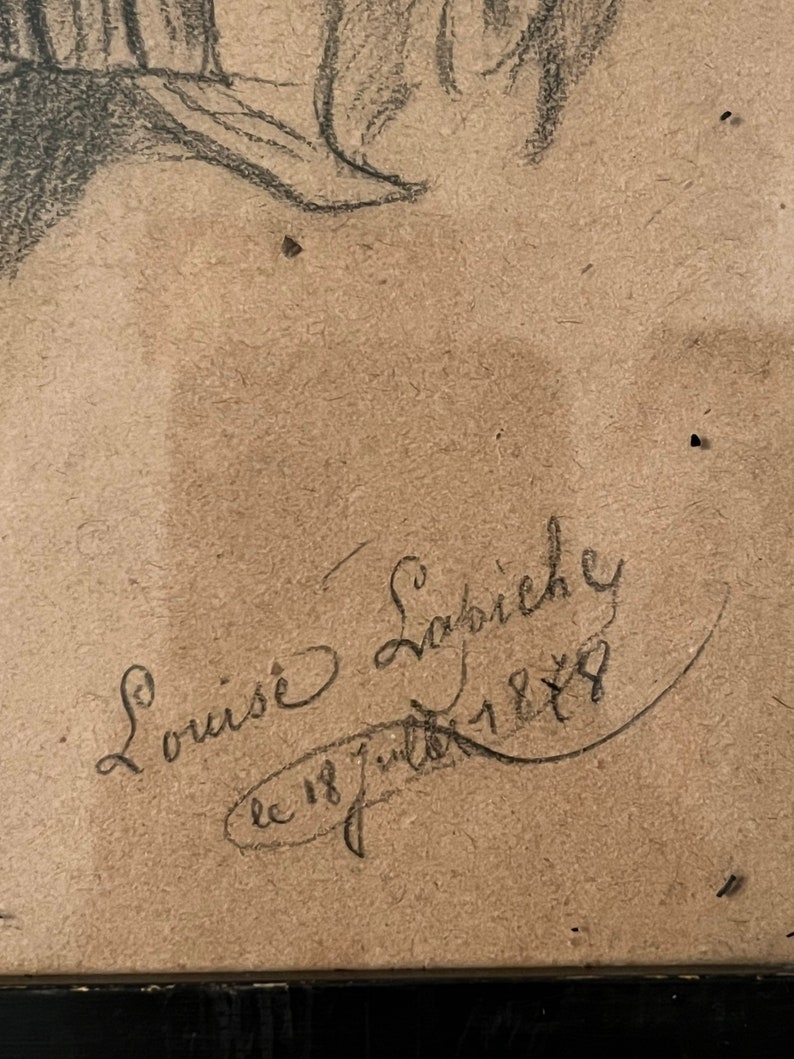 Louise Lapiche
le 18 juillet 1878